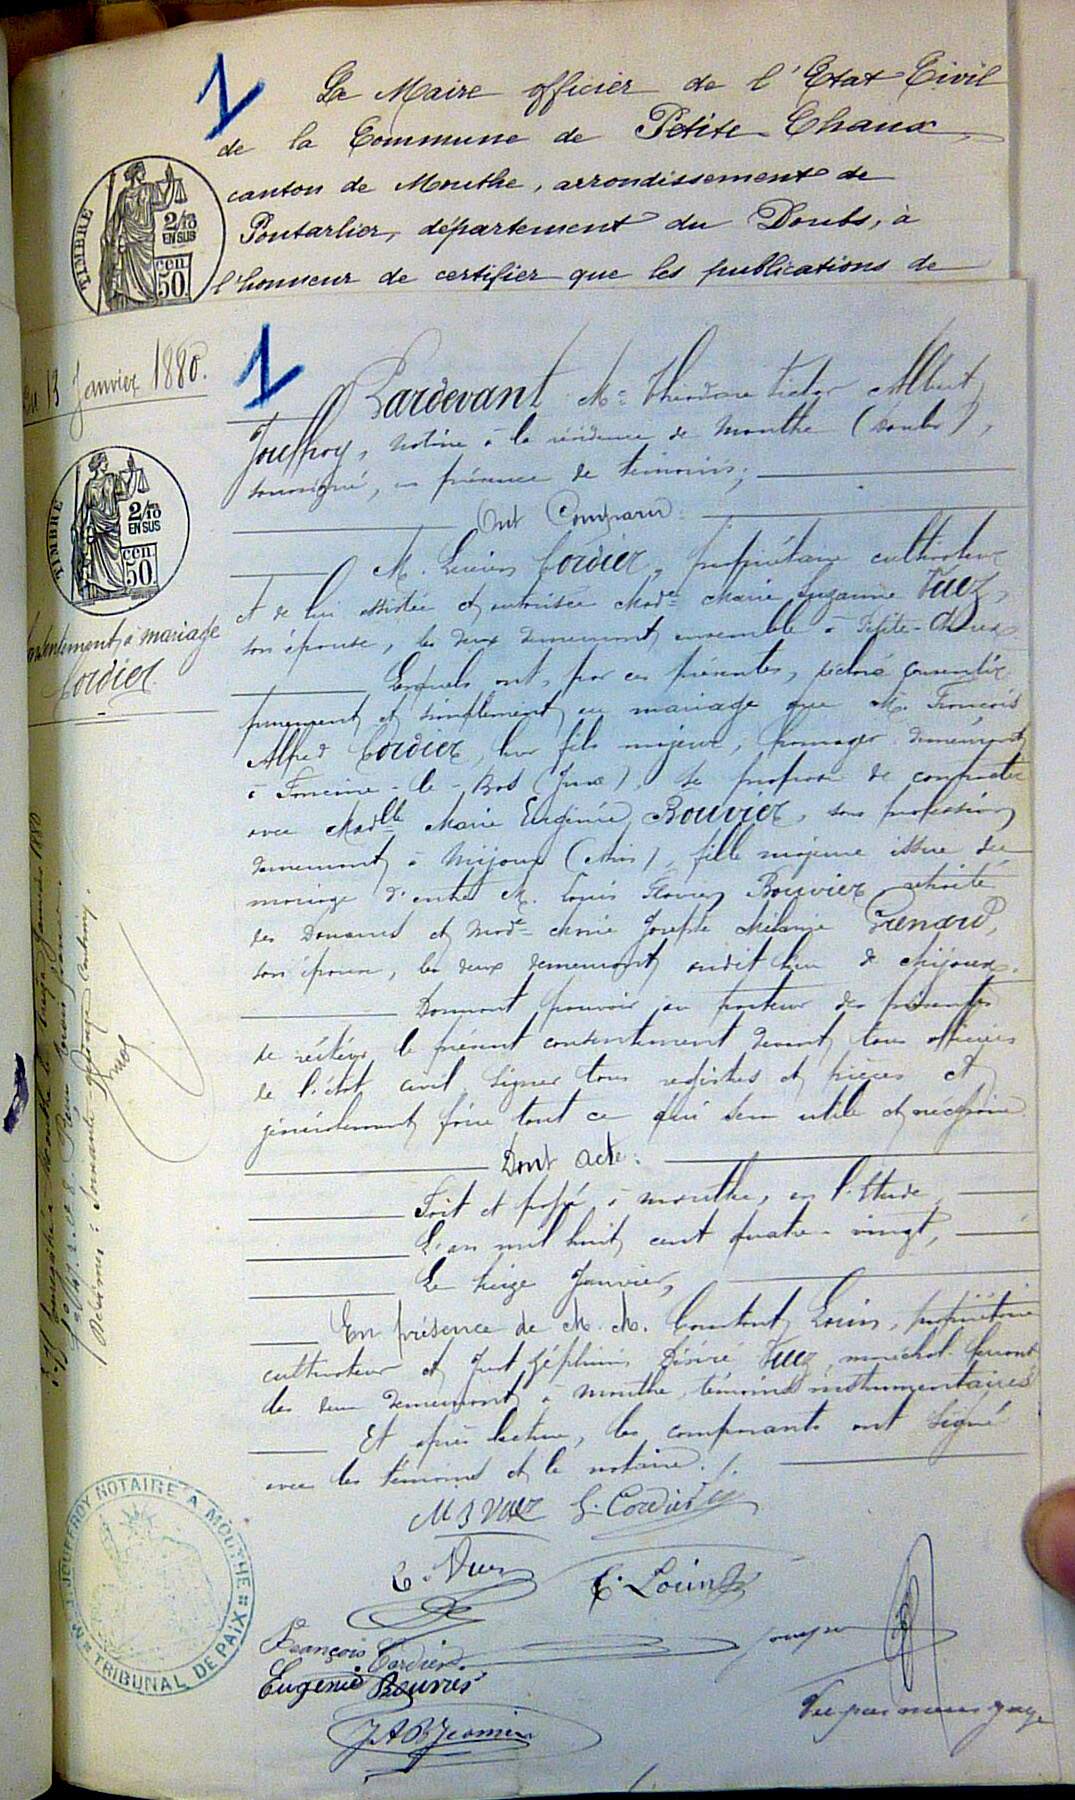 1
Le Maire officier de l'Etat Civil
de la Commune de Petite Chaux,
canton de Mouthe, arrondissement de
Pontarlier, département du Doubs, à
l'honneur de certifier que les publications de
TIMBRE
2/10
EN SUS
cen
50.
Du 13 Janvier 1880.
1
Pardevant Me Théodore Victor Albert
Jouffroy, notaire à la résidence de Mouthe (Doubs),
soussigné, en présence de témoins;
Ont Comparu:
M. Lucien Cordier, propriétaire cultivateur
et de lui assistée et autorisée Made Marie Suzanne Vuez,
son épouse, les deux demeurant ensemble à Petite-Chaux
Lesquels ont, par ces présentes, déclaré consentir
purement et simplement au mariage que M. François
Alfred Cordier, leur fils majeur, fromager demeurant
à Foncine-le-Bas (Jura), se propose de contracter
avec Madlle Marie Eugénie Bouvier, sans profession
demeurant à Mijoux (Ain), fille majeure issue du
mariage d'entre M. Louis Bouvier retraité
des Douanes et Made Marie Josephte Mélanie Grenard,
son épouse, les deux demeurant audit lieu de Mijoux.
Donnant pouvoir au porteur des présentes
de réitérer le présent consentement devant tous officiers
de l'état civil signer tous registres et pièces et
généralement faire tout ce qui sera utile et nécessaire.
Dont acte:
Fait et passé à Mouthe, en l'Etude,
L'an mil huit cent quatre-vingt,
Le treize Janvier,
En présence de M.M. Constant Louis, propriétaire
cultivateur et Just Zéphirin Désiré Vuez, maréchal-ferrant
les deux demeurant à Mouthe, témoins instrumentaires
Et après lecture, les comparants ont signé
avec les témoins et le notaire./.
TIMBRE
2/10
EN SUS
cen
50.
Consentement à mariage
Cordier
Enregistré à Mouthe le Janvier 1880
Reçu trois francs
Décimes: soixante-quinze centimes.
M S Vuez L. Cordier
Vuez
C. Louis
François Cordier
Eugenie Bouvier
Jouffroy
J A B Jeannin
Vu par nous juge
J. JOUFFROY NOTAIRE A MOUTHE
TRIBUNAL DE PAIX